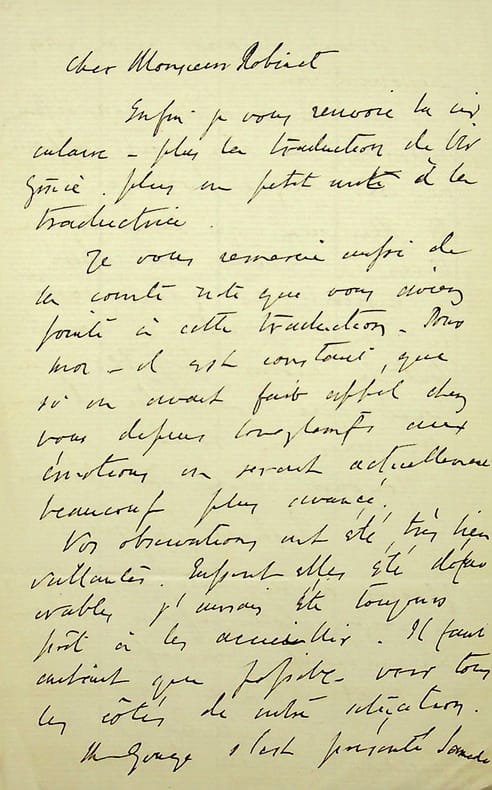 Cher Monsieur Robinet
Enfin je vous renvoie la cir
culaire - plus la traduction de Vir
ginie. plus un petit mot à la
traductrice.
Je vous remercie aussi de
la courte note que vous aviez
jointe à cette traduction - Pour
moi - il est constant, que
si on avait fait appel chez
vous depuis longtemps aux
émotions on serait actuellement
beaucoup plus avancé.
Vos observations ont été, très bien
vaillantes. Eussent elles été défav
orables j'aurais été toujours
prêt à les accueillir. Il faut
autant que possible voir tous
les côtés de notre situation.
M s'est présenté Samedi